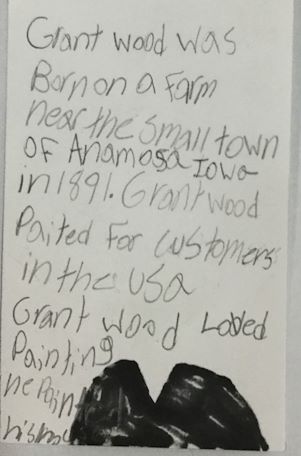 Grant wood was
Born on a Farm
near the small town
OF Anamosa Iowa
in 1891. Grant wood
Paited For customers
in the USA
Grant wood Loved
Painting
he Pain
his